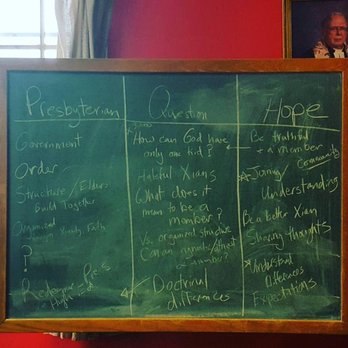 Presbyterian
Government
Order
Structure / Elders
Build Together
Organized
Faith
?
Redeemer
Question
How can God have
only one kid?
Hateful Xians
What does it
mean to be a
member?
Vs. organized structure
Can an
a member?
Doctrinal
differences
Hope
Be truthful
+ a member
Community
Joining
Understanding
Be a better Xian
Sharing thoughts
Understand
Differences
Expectations